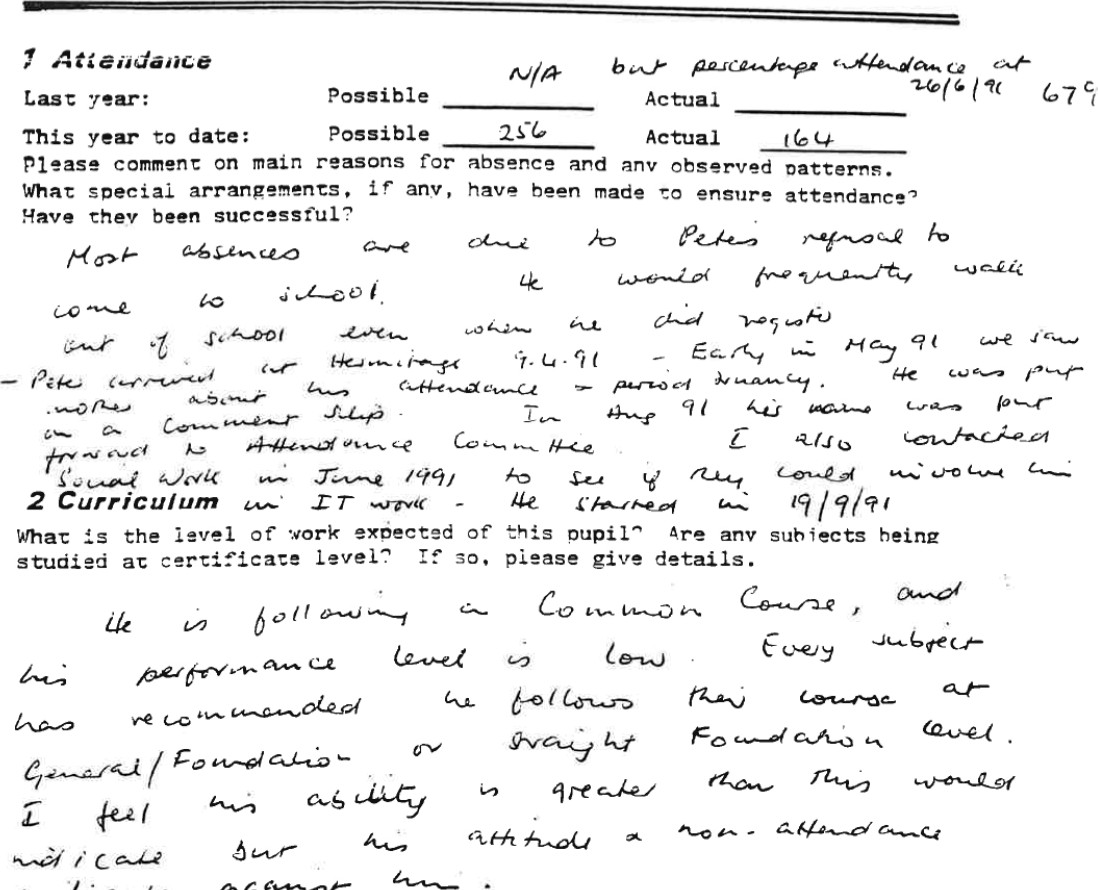 1 Attendance
N/A but percentage attendance at
26/6/91 67%
Last year: Possible Actual
This year to date: Possible 256 Actual 164
Please comment on main reasons for absence and any observed patterns.
What special arrangements, if any, have been made to ensure attendance?
Have they been successful?
Most absences are due to Peters refusal to
come to school. He would frequently walk
out of school even when he did register
- Peter arrived at Hermitage 9.4.91 - Early in May 91 we saw
about his attendance - period truancy. He was put
on a Comment Slip. In Aug 91 his name was put
forward to Attendance Committee. I also contacted
Social Work in June 1991 to see if they could involve him
in IT work - He started in 19/9/91
2 Curriculum
What is the level of work expected of this pupil? Are any subjects being
studied at certificate level? If so, please give details.
He is following a Common Course, and
his performance level is low. Every subject
has recommended he follows their course at
General/Foundation or straight Foundation level.
I feel his ability is greater than this would
indicate but his attitude & non-attendance
against him.